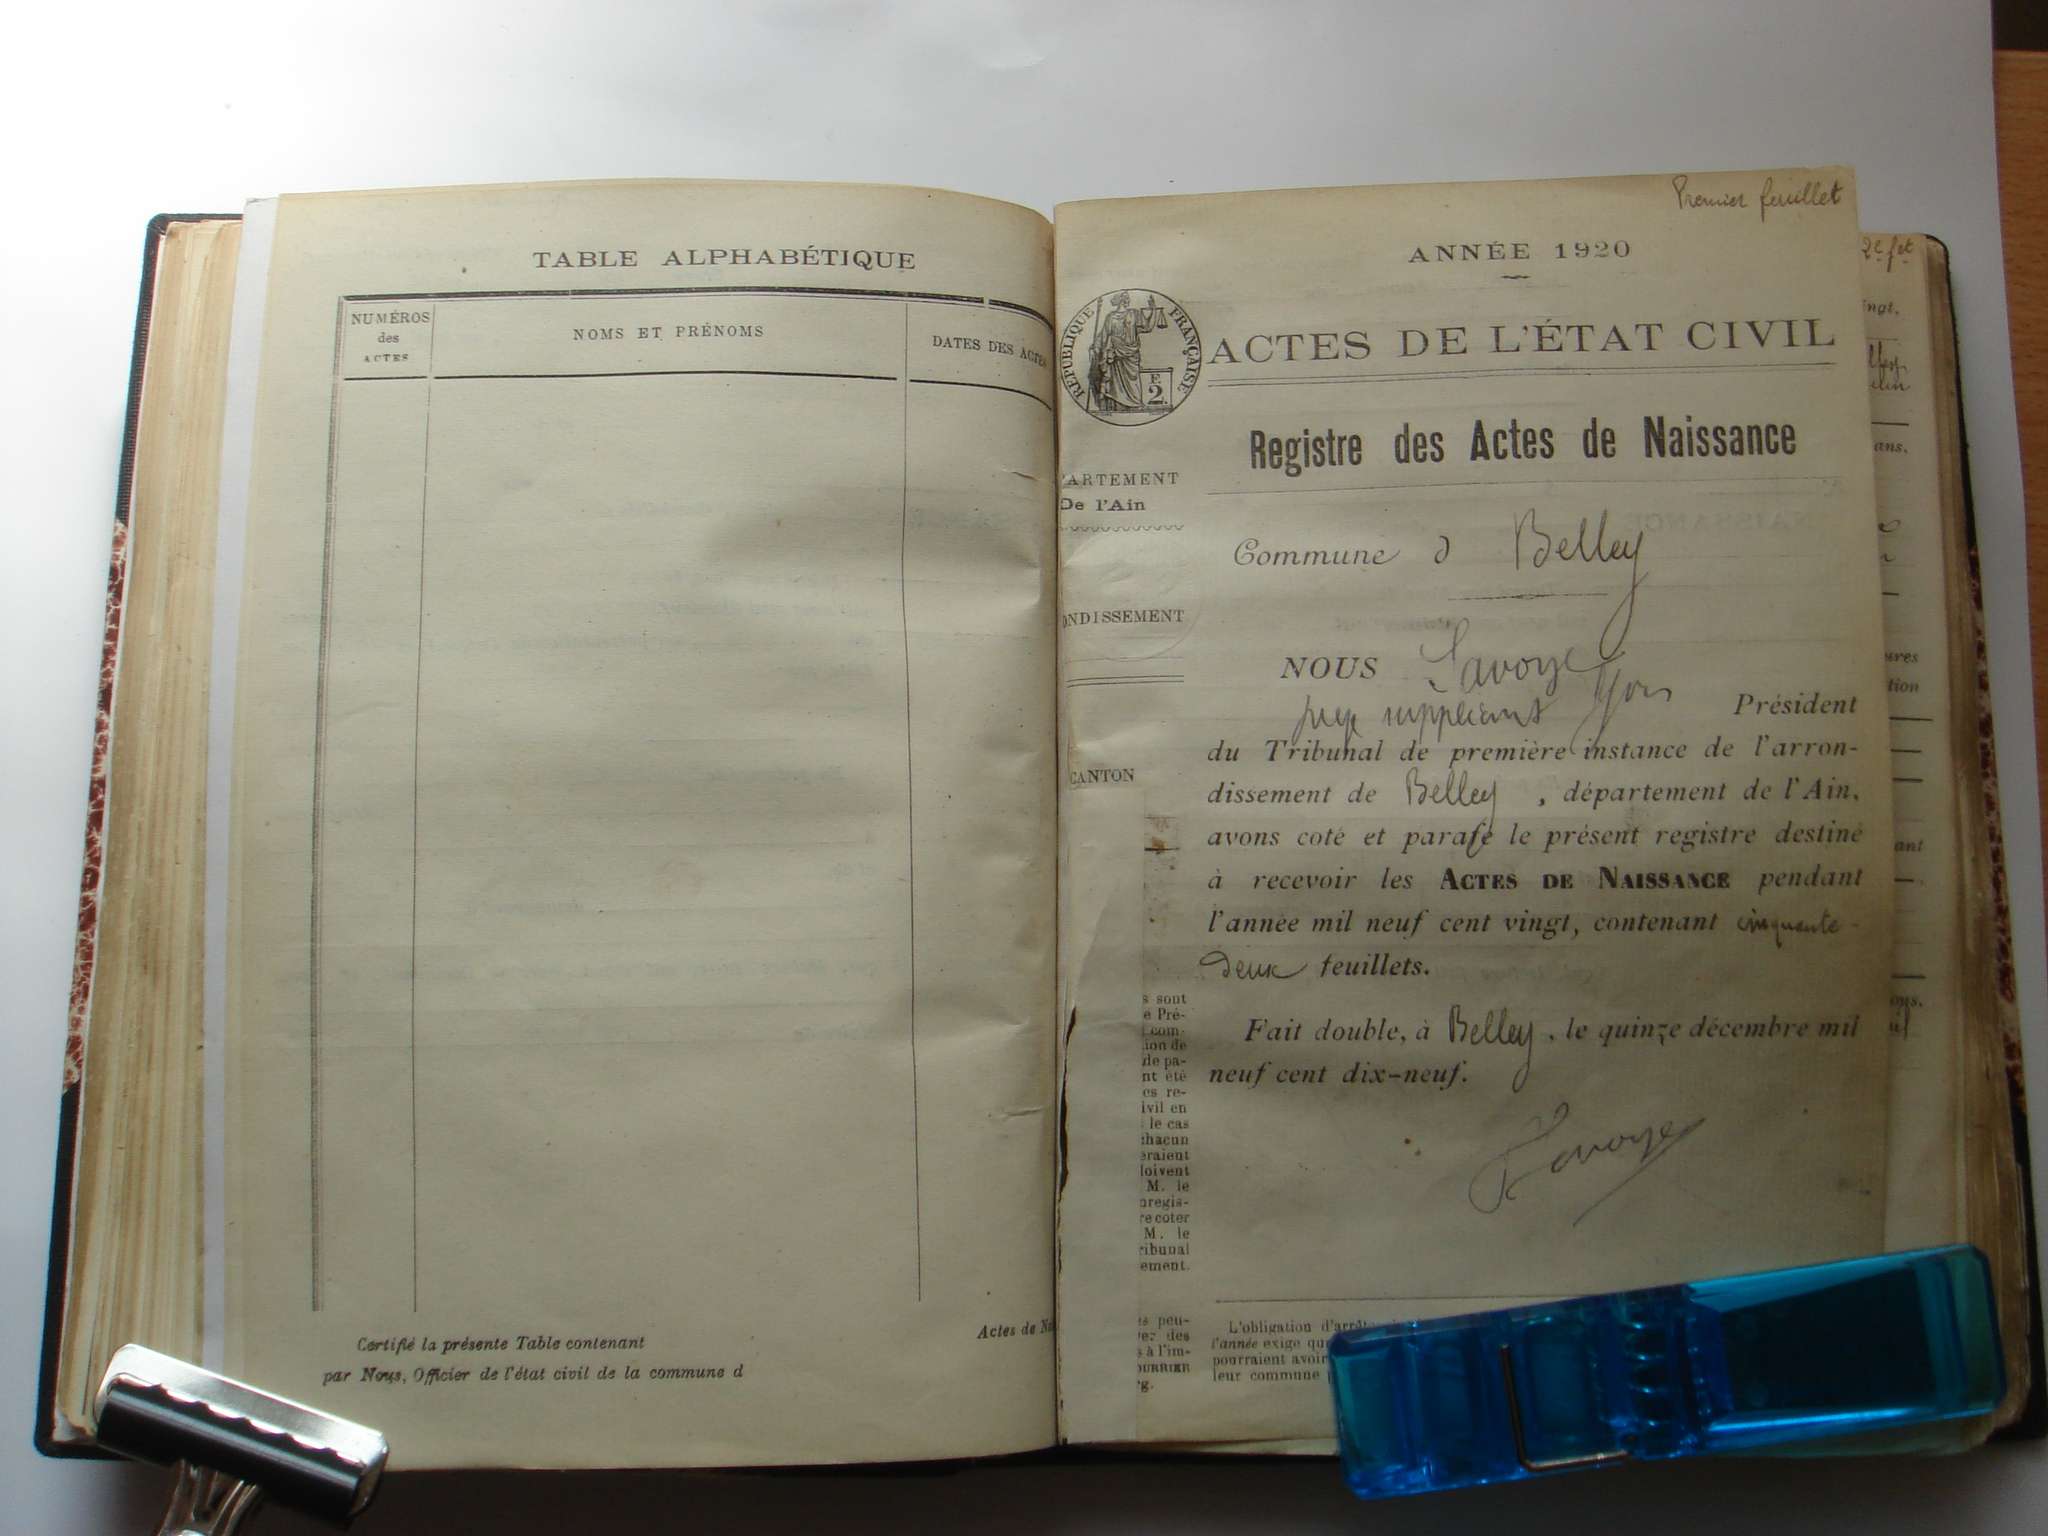 TABLE ALPHABÉTIQUE
NUMÉROS
des
ACTES
NOMS ET PRÉNOMS
DATES DES ACTES
Certifié la présente Table contenant
par Nous, Officier de l'état civil de la commune d
Actes de Na
Premier feuillet
ANNÉE 1920
RÉPUBLIQUE FRANÇAISE
E
2
ACTES DE L'ÉTAT CIVIL
Registre des Actes de Naissance
PARTEMENT
De l'Ain
ONDISSEMENT
CANTON
Commune d Belley
NOUS Savoye
juge suppléant Président
du Tribunal de première instance de l'arron-
dissement de Belley, département de l'Ain,
avons coté et parafé le présent registre destiné
à recevoir les ACTES DE NAISSANCE pendant
l'année mil neuf cent vingt, contenant cinquante-
deux feuillets.
Fait double, à Belley, le quinze décembre mil
neuf cent dix-neuf.
Savoye
s sont
e Pré-
com-
ion de
de pa-
nt été
es re-
ivil en
le cas
chacun
eraient
doivent
M. le
nregis-
re coter
M. le
ribunal
ement.
es peu-
vez des
s à l'im-
OURRIER
rg.
L'obligation d'arrête
l'année exige qu
pourraient avoir
leur commune
2e fet
ingt,
ans,
tion
ant